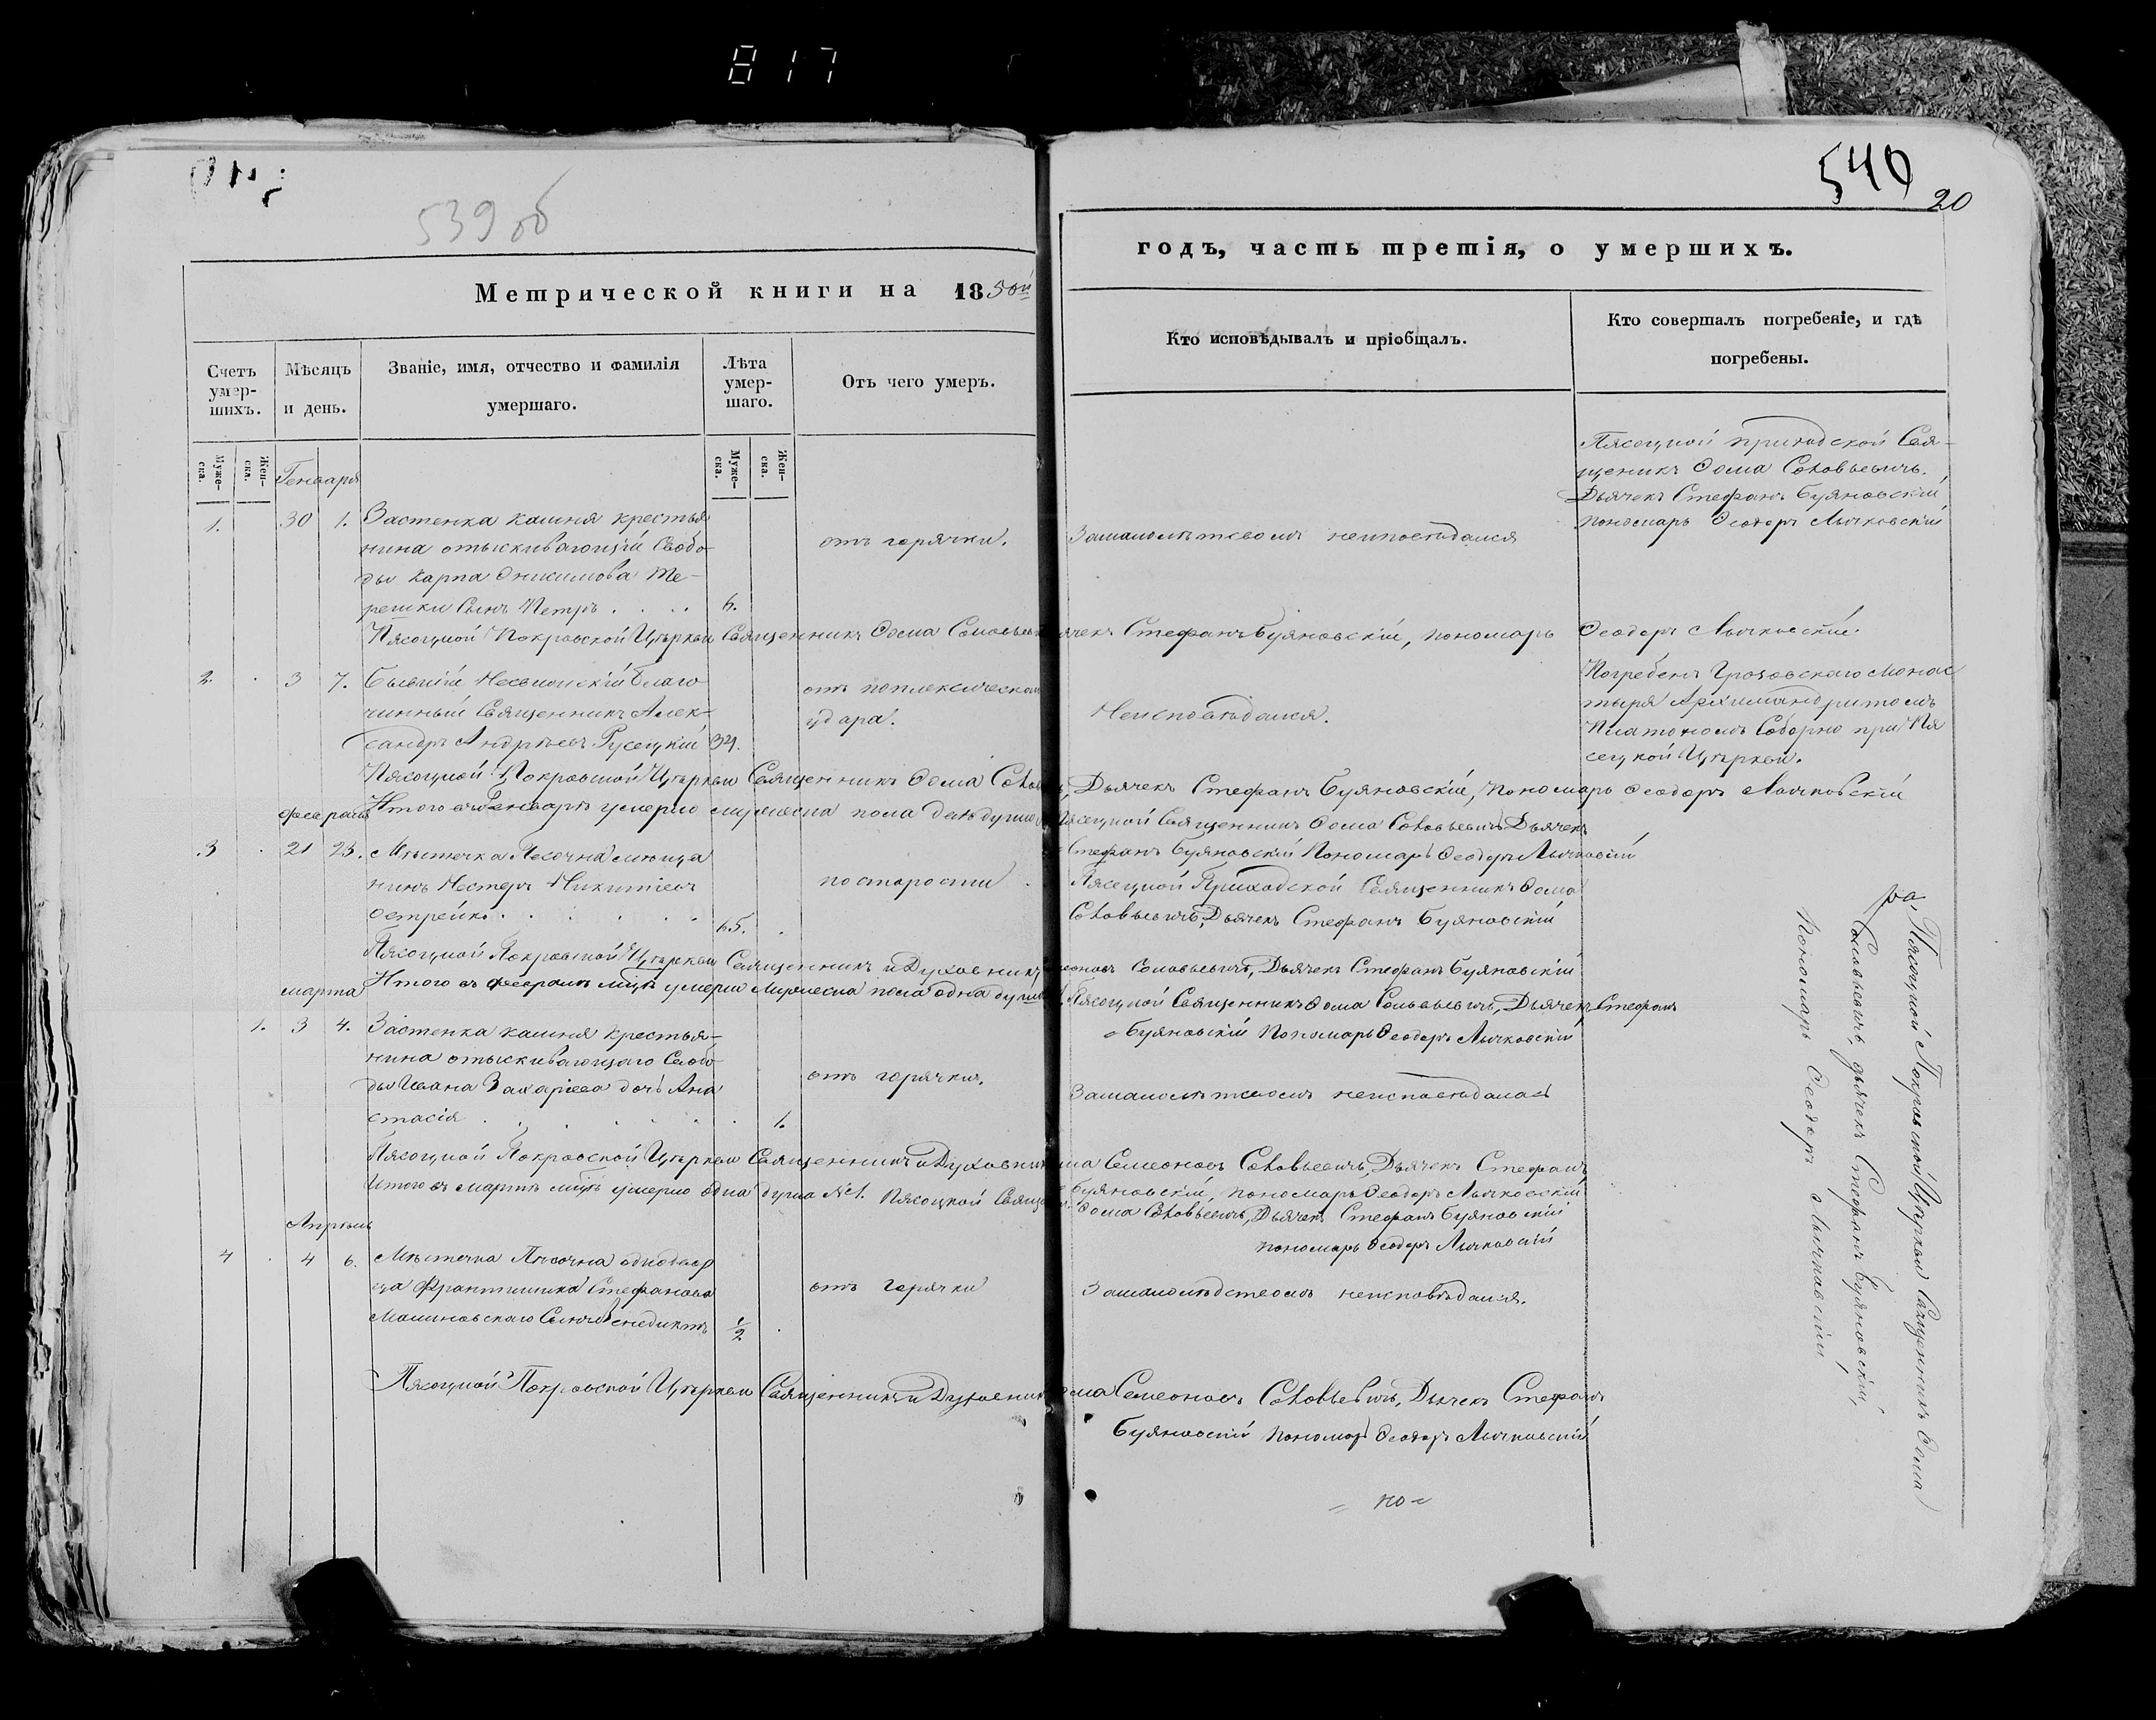 817
539 об
540
20
Метрической книги на 1850й
годъ, часть третія, о умершихъ.
Счетъ умер-шихъ.
Мѣсяцъ и день.
Званіе, имя, отчество и фамилія умершаго.
Лѣта умер-шаго.
Отъ чего умеръ.
Кто исповѣдывалъ и пріобщалъ.
Кто совершалъ погребеніе, и гдѣ погребены.
Муже-ска.
Жен-ска.
Муже-ска.
Жен-ска.
Генваря
1. 30 1. Застенка камня крестья
нина отыскивающій Свобо-
ды Карпа Оникимова Те-
решки Сынъ Петръ . . . . 6.
отъ горячки.
Замалолѣтсвомъ неисповѣдался
Пясоцкой приходской Свя-
щеникъ Ѳома Соловьевичъ.
Дьячекъ Стефанъ Буяновскій
пономарь Ѳеодоръ Лычковскій
Пясоцкой Покровской Цѣркви Священникъ Ѳома Соловьев
ячекъ Стефанъ Буяновскій, пономарь Ѳеодоръ Лычковскій.
2. 3 7. Бывшій Несвижскій Благо
чинный Священникъ Алек-
сандръ Андрѣевъ Русецкій 34.
отъ поплексическаго
удара.
Неисповѣдался.
Погребенъ Грозовскаго Монас
тыря Архимандритомъ
Платономъ Соборно при Пя
сецкой Цѣркви.
Пясоцкой Покровской Цѣркви Священникъ Ѳома Солов
ъ, Дьячекъ Стефанъ Буяновскій, Пономарь Ѳеодоръ Лычковскій
Итого въ Генварѣ умерло мужеска пола двѣ души
Пясецкой Священникъ Ѳома Соловьевичъ Дьячекъ
Стефанъ Буяновскій Пономарь Ѳеодоръ Лычковскій
февраля
3 21 23. Мѣстечка Песочна мѣща
нинъ Нестеръ Никитіевъ
Острейко . . . . . . 65.
по старости
Пясецкой Приходской Священникъ Ѳома
Соловьевичъ, Дьячекъ Стефанъ Буяновскій
Пясоцкой Покровской Цѣркви Священникъ и Духовникъ
еоновъ Соловьевичъ, Дьячекъ Стефанъ Буяновскій
Итого въ февралѣ мцѣ умерла Мужеска пола одна душа
Пясоцкой Священникъ Ѳома Соловьевичъ, Дьячекъ Стефанъ
Буяновскій Пономарь Ѳеодоръ Лычковскій
марта
1. 3 4. Застенка камня крестья-
нина отыскивающаго Свобо-
ды Ивана Захаріева дочь Ана
стасія . . . . . . . 1.
отъ горячки.
Замалолѣтсвомъ неисповѣдалась
Пясоцкой Покровской Цѣркви Священникъ и Духовник
ма Семеоновъ Соловьевичъ, Дьячекъ Стефанъ
Буяновскій, пономарь Ѳеодоръ Лычковскій
Итого въ мартѣ мцѣ умерло одна душа №1. Пясоцкой Священ
Ѳома Соловьевичъ, Дьячекъ Стефанъ Буяновскій
пономарь Ѳеодоръ Лычковскій
Апрель
4 4 6. Мѣстечка Пясочна однодвор
ца Францишка Стефанова
Малиновскаго Сынъ Венедиктъ 1/2
отъ горячки
Замалолѣдствомъ неисповѣдался.
Пясоцкой Покровской Цѣркви Священникъ и Духовник
ома Семеоновъ Соловьевичъ, Дьячекъ Стефанъ
Буяновскій пономарь Ѳеодоръ Лычковскій
ра, Пясоцкой Покровской Цѣркви Священникъ Ѳома
Соловьевичъ, дьячекъ Стефанъ Буяновскій,
Пономарь Ѳеодоръ Лычковскій